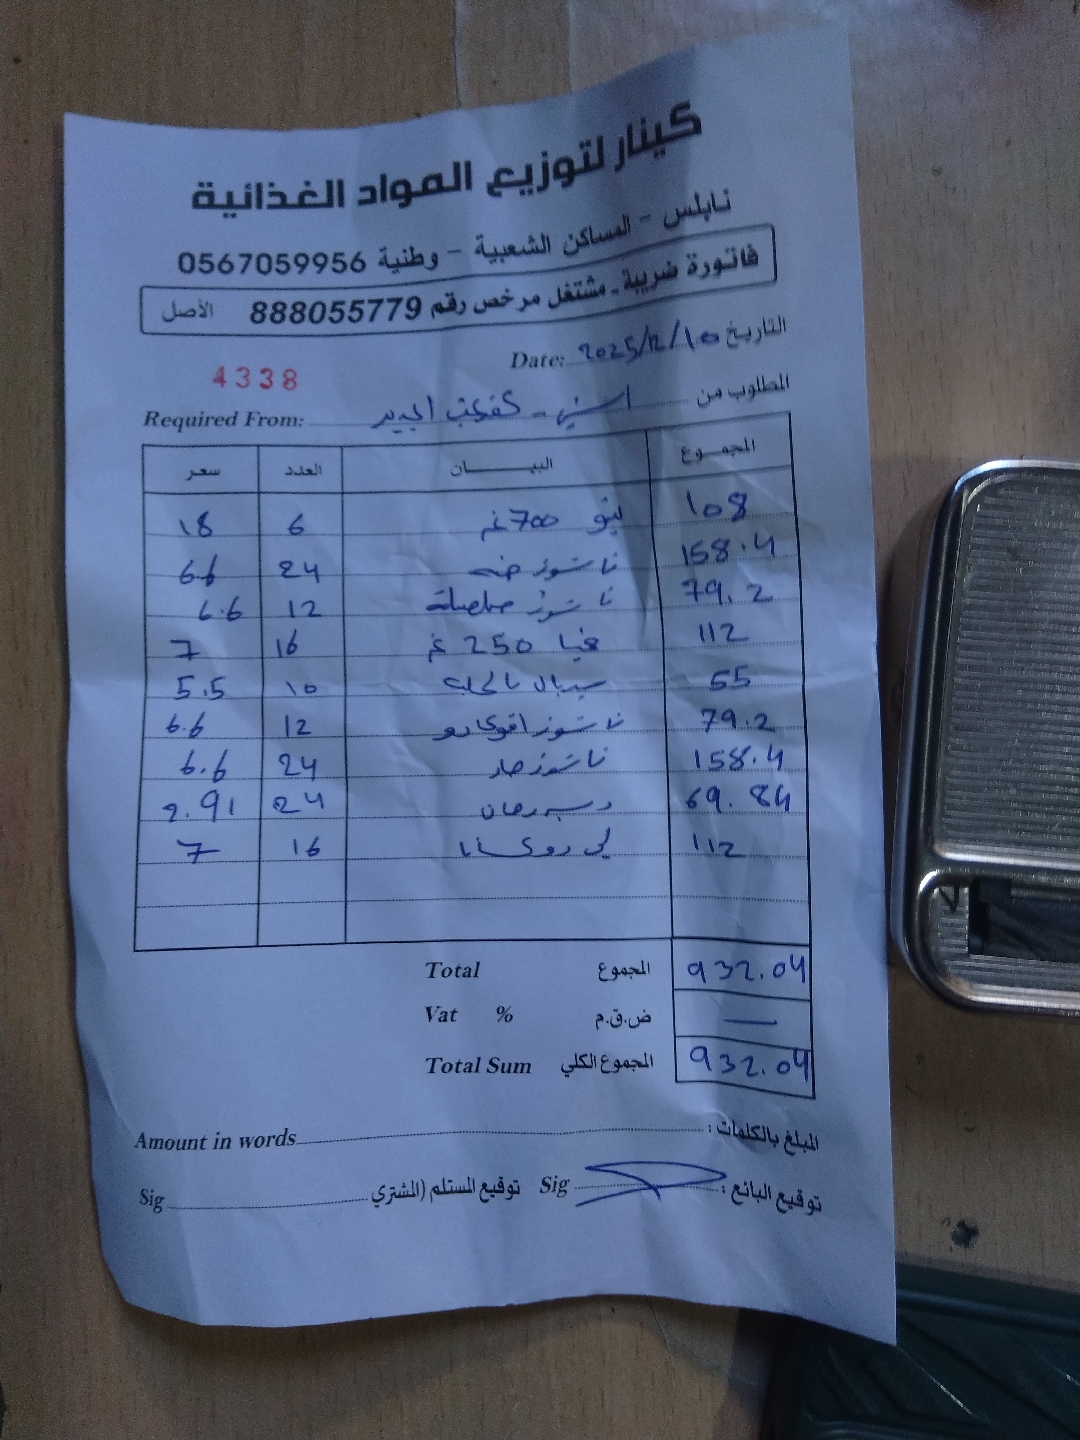 كينار لتوزيع المواد الغذائية
نابلس - المساكن الشعبية - وطنية 0567059956
فاتورة ضريبة - مشتغل مرخص رقم 888055779 الأصل
التاريخ 2025/12/10 Date:
4338
المطلوب من Required From:
المجمـوع البيـــــان العدد سعر
108 700 غم 6 18
158.4 ناشوز 24 6.6
79.2 ناشوز 12 6.6
112 250 غم 16 7
55 10 5.5
79.2 ناشوز افوكادو 12 6.6
158.4 ناشوز حار 24 6.6
69.84 24 2.91
112 16 7
Total المجموع 932.04
Vat % ض.ق.م —
Total Sum المجموع الكلي 932.04
Amount in words المبلغ بالكلمات :
توقيع البائع : Sig توقيع المستلم (المشتري Sig